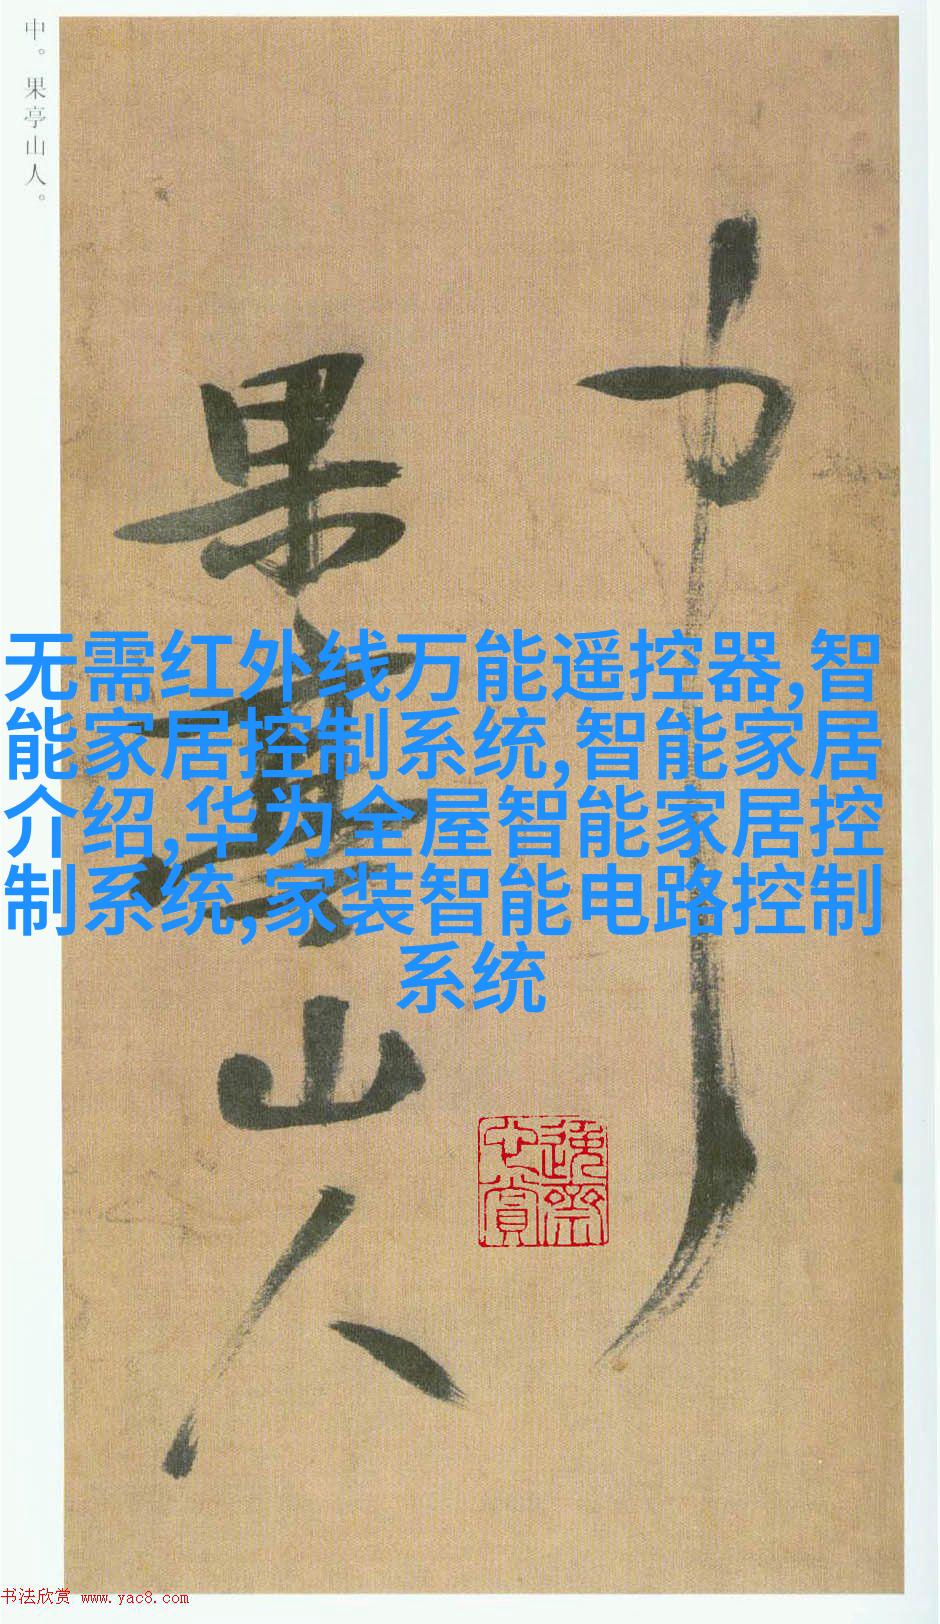 中。果亭山人。
中
果亭山人
无需红外线万能遥控器,智
能家居控制系统,智能家居
介绍,华为全屋智能家居控
制系统,家装智能电路控制
系统
心赏
逸斋
书法欣赏 www.yac8.com